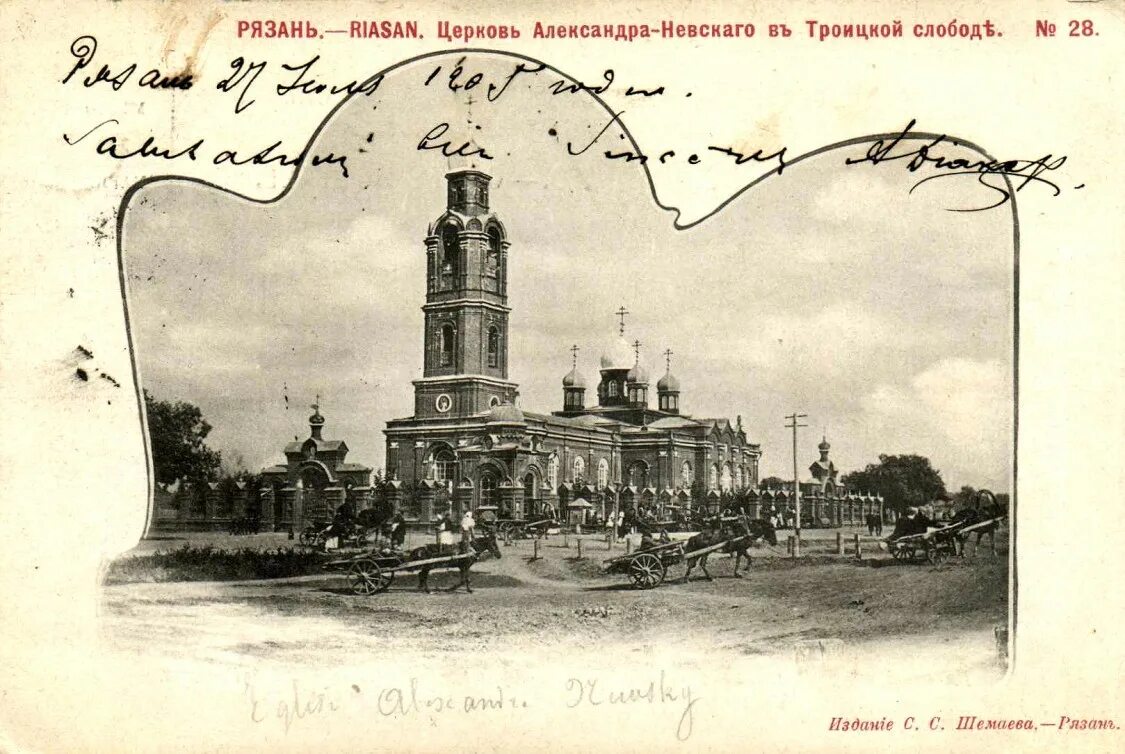 РЯЗАНЬ.—RIASAN. Церковь Александра-Невскаго въ Троицкой слободѣ. № 28.
Рязань 27 Іюля 1905 годи.
Salutations bien sincères
Eglise Alexandre Newsky
Изданіе С. С. Шемаева.—Рязань.